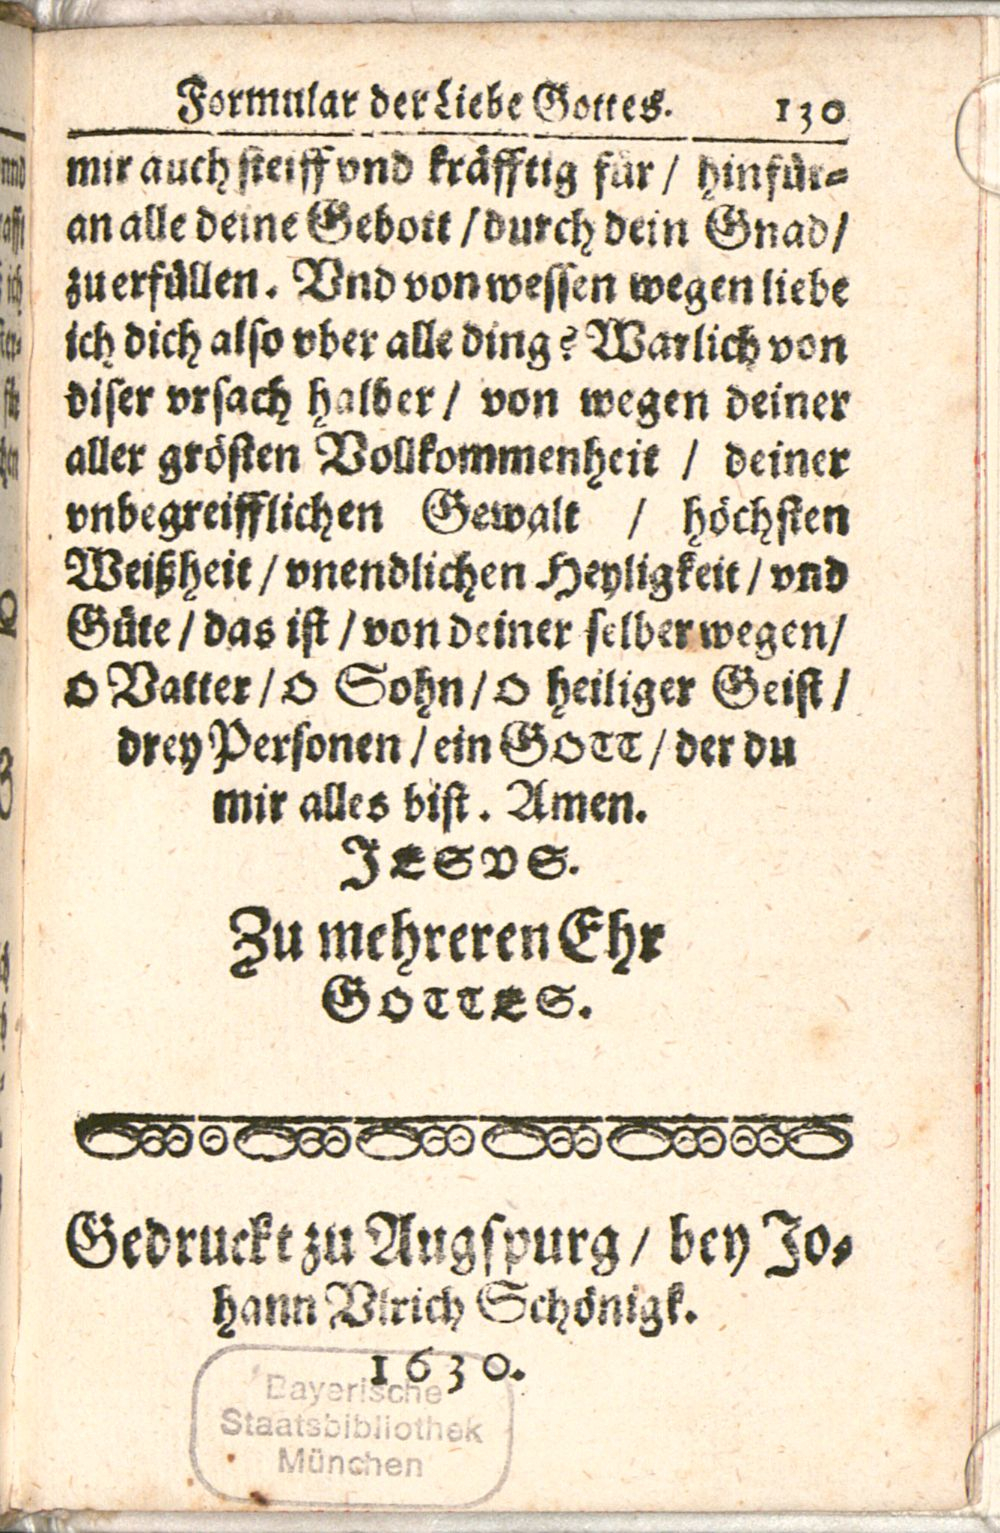 Formular der Liebe Gottes. 130
mir auch steiff vnd kräfftig für / hinfür-
an alle deine Gebott / durch dein Gnad /
zu erfüllen. Vnd von wessen wegen liebe
ich dich also vber alle ding? Warlich von
diser vrsach halber / von wegen deiner
aller grösten Vollkommenheit / deiner
vnbegreifflichen Gewalt / höchsten
Weißheit / vnendlichen Heyligkeit / vnd
Güte / das ist / von deiner selber wegen /
O Vatter / O Sohn / O heiliger Geist /
drey Personen / ein GOTT / der du
mir alles bist. Amen.
JESVS.
Zu mehreren Ehr
GOTTES.
Gedruckt zu Augspurg / bey Jo-
hann Vlrich Schönigk.
1630.
Bayerische
Staatsbibliothek
München